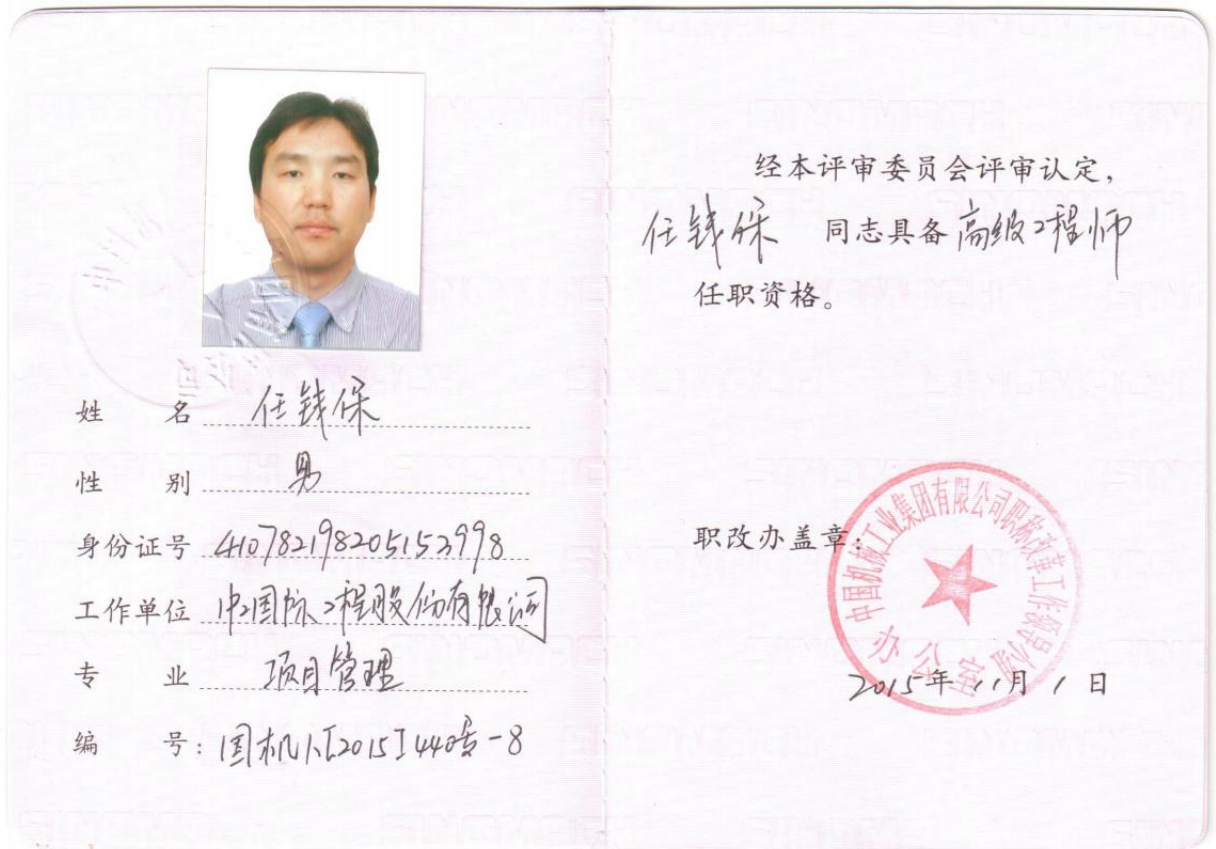 姓 名 任钱保
性 别 男
身份证号 410782198205153998
工作单位 中工国际工程股份有限公司
专 业 项目管理
编 号：国机人[2015]440号-8
经本评审委员会评审认定，
任钱保 同志具备 高级工程师
任职资格。
职改办盖章：
中国机械工业集团有限公司职称改革工作领导小组
办公室
2015年11月1日